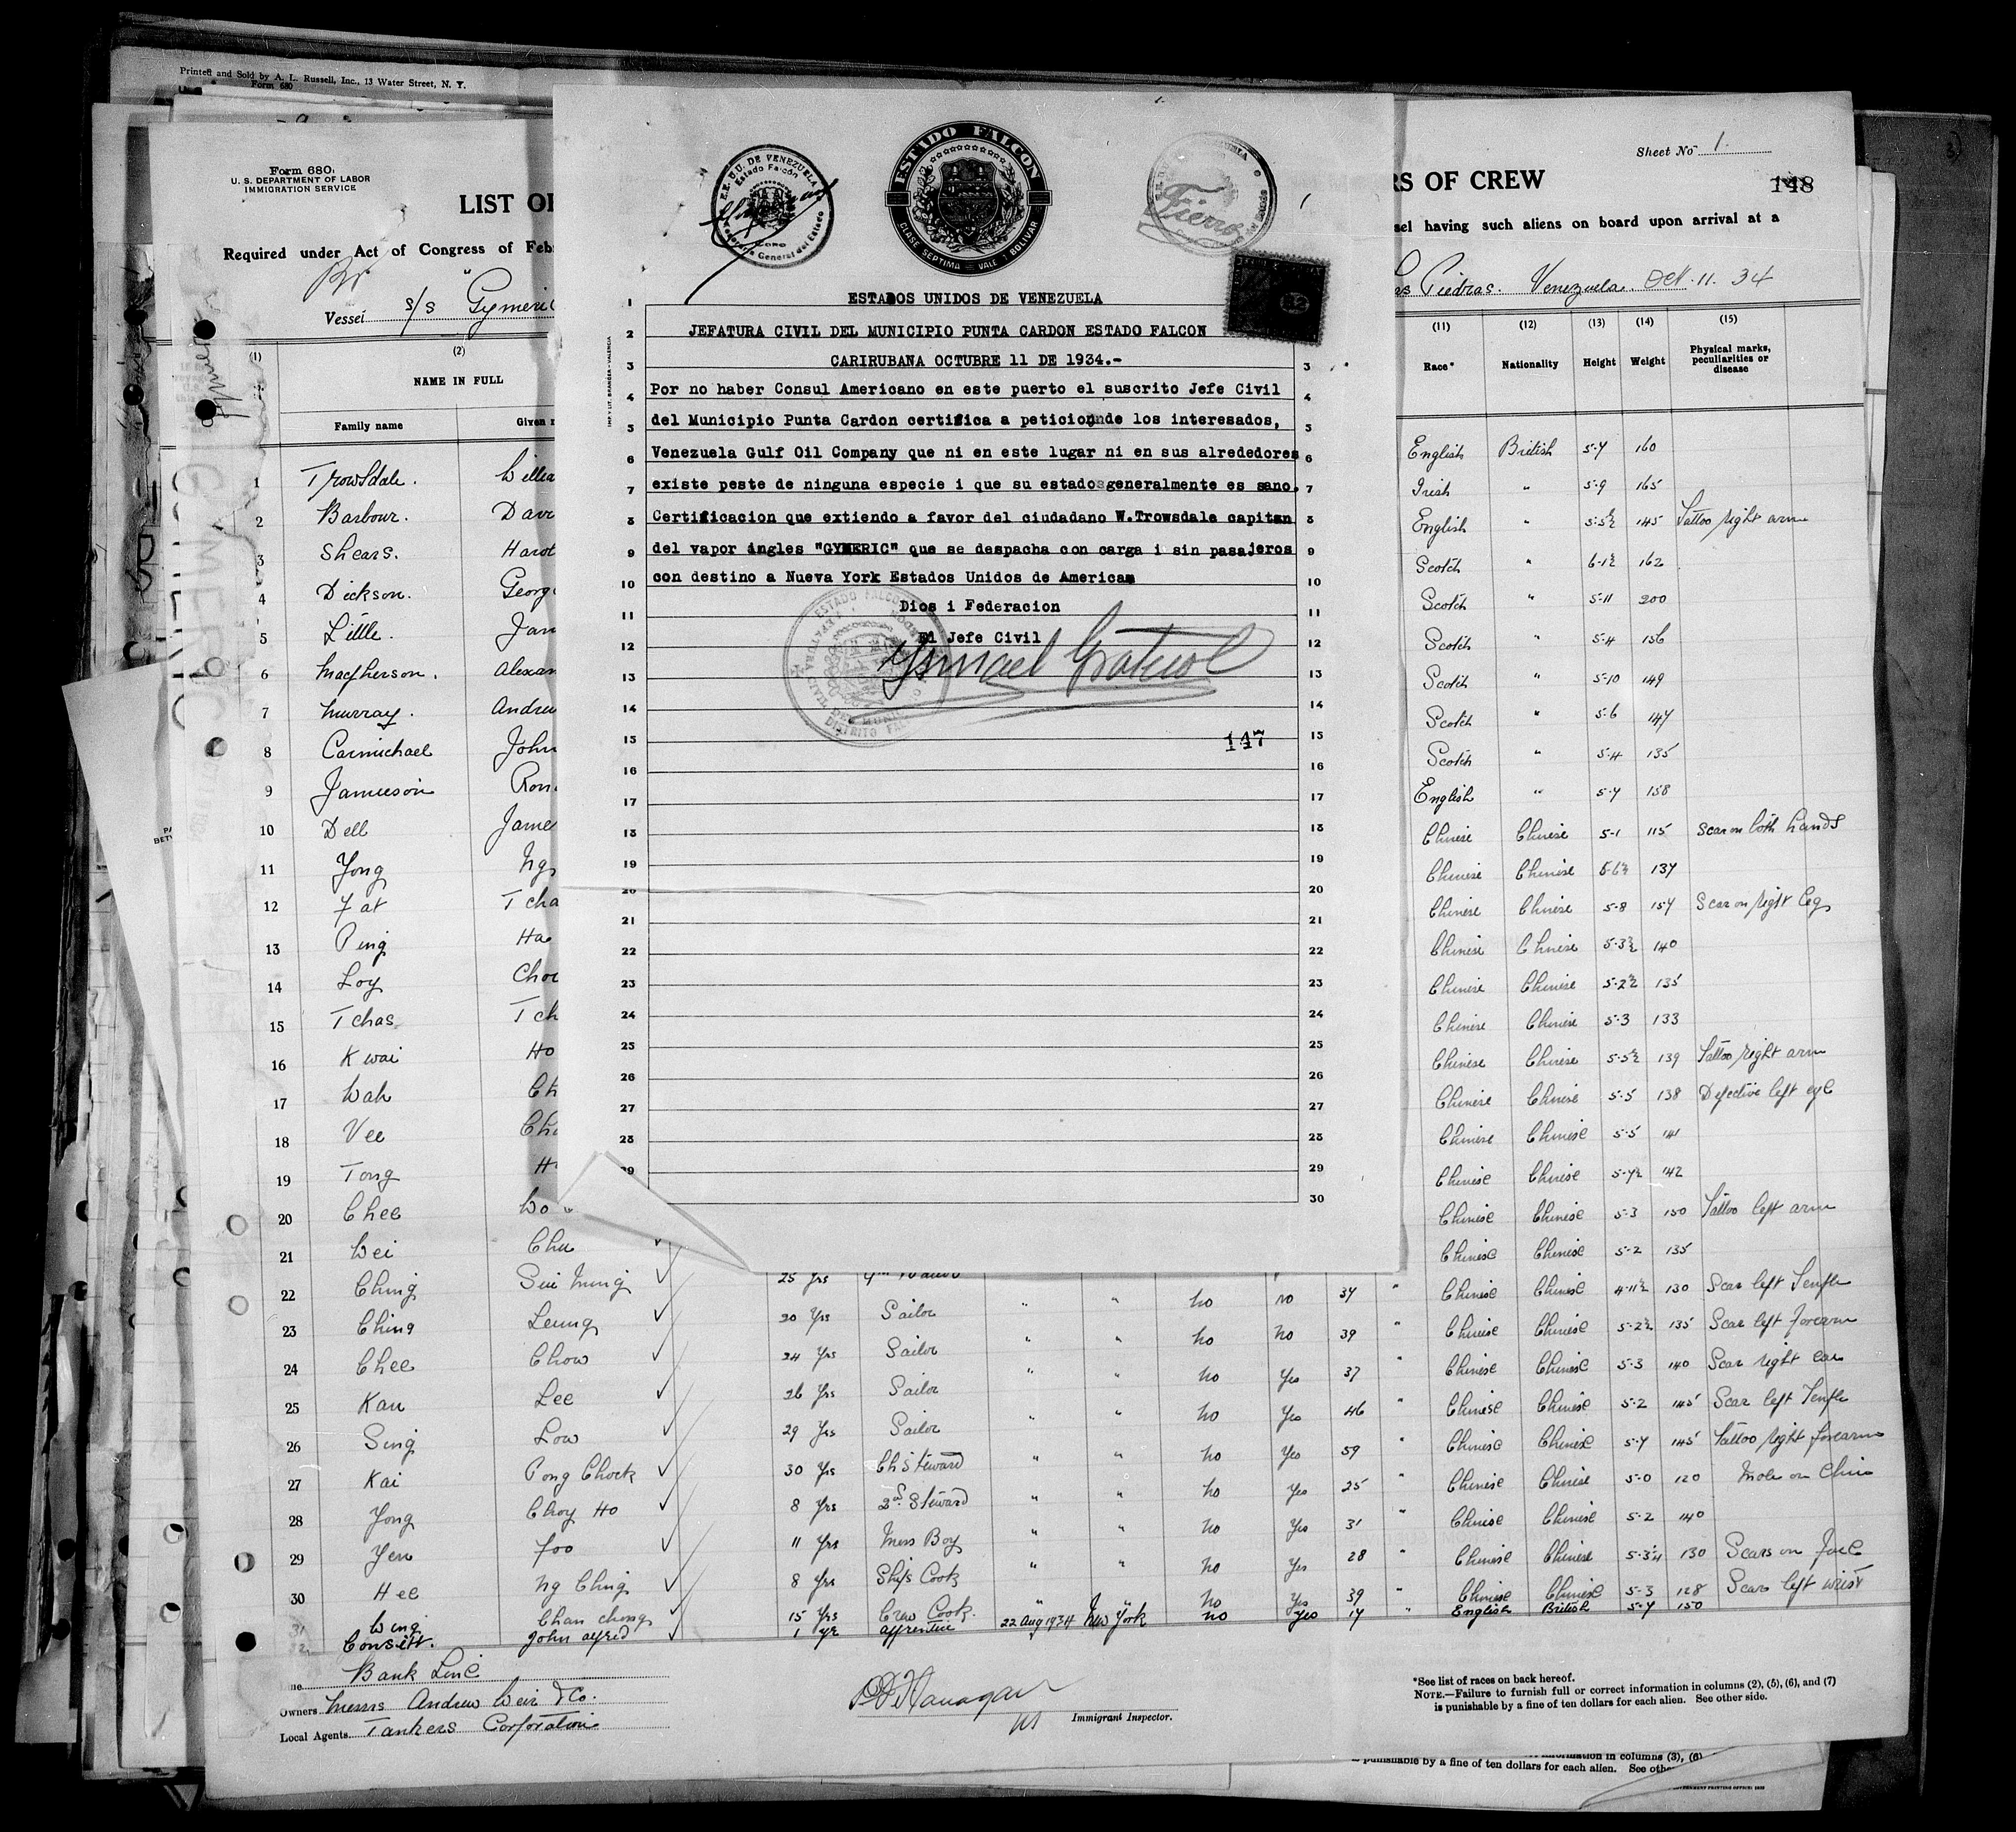 Printed and Sold by A. L. Russell, Inc., 13 Water Street, N. Y.
Form 680
Form 680
U. S. DEPARTMENT OF LABOR
IMMIGRATION SERVICE
Sheet No 1
148
LIST OF
RS OF CREW
Required under Act of Congress of Feb
sel having such aliens on board upon arrival at a
Br
Vessel s/s "Gymeric
Piedras. Venezuela. Oct. 11. 34
E.E. U.U. DE VENEZUELA
Estado Falcón
CORO
General del Estado
ESTADO FALCON
CLASE SEPTIMA VALE 1 BOLIVAR
Fierro
1 ESTADOS UNIDOS DE VENEZUELA
2 JEFATURA CIVIL DEL MUNICIPIO PUNTA CARDON ESTADO FALCON
3 CARIRUBANA OCTUBRE 11 DE 1934.- 3
4 Por no haber Consul Americano en este puerto el suscrito Jefe Civil 4
5 del Municipio Punta Cardon certifica a peticionde los interesados, 5
6 Venezuela Gulf Oil Company que ni en este lugar ni en sus alrededores 6
7 existe peste de ninguna especie i que su estado generalmente es sano. 7
8 Certificacion que extiendo a favor del ciudadano W.Trowsdale capitan 8
9 del vapor ingles "GYMERIC" que se despacha con carga i sin pasajeros 9
10 con destino a Nueva York Estados Unidos de America 10
11 Dios i Federacion 11
12 El Jefe Civil 12
13 13
14 14
15 147 15
16 16
17 17
18 18
19 19
20 20
21 21
22 22
23 23
24 24
25 25
26 26
27 27
28 28
29 29
30
(1) (2) (11) (12) (13) (14) (15)
NAME IN FULL Race* Nationality Height Weight Physical marks, peculiarities or disease
Family name Given n
1 Trowsdale. Willia English British 5-7 160
2 Barbour. Davi Irish " 5-9 165
3 Shears. Harol English " 5-5½ 145 Tattoo right arm
4 Dickson. Georg Scotch " 6-1½ 162
5 Little. Jam Scotch " 5-11 200
6 Macpherson. Alexan Scotch " 5-4 156
7 Murray. Andrew Scotch " 5-10 149
8 Carmichael John Scotch " 5-6 147
9 Jamieson Ron Scotch " 5-4 135
10 Dell Jame English " 5-7 158
11 Yong Ng Chinese Chinese 5-1 115 Scar on both hands
12 Fat Tcha Chinese Chinese 5-6½ 137
13 Ping Ha Chinese Chinese 5-8 157 Scar on right leg
14 Loy Cho Chinese Chinese 5-3½ 140
15 Tchas Tch Chinese Chinese 5-2½ 135
16 Kwai Ho Chinese Chinese 5-3 133
17 Wah Ch Chinese Chinese 5-5½ 139 Tattoo right arm
18 Vee Cho Chinese Chinese 5-5 138 Defective left eye
19 Tong H Chinese Chinese 5-5 141
20 Chee Wo Chinese Chinese 5-7½ 142
21 Wei Chu Chinese Chinese 5-3 150 Tattoo left arm
Chinese Chinese 5-2 135
22 Ching Sui Mung 25 Yrs no no 37 " Chinese Chinese 4-11½ 130 Scar left Temple
23 Ching Leung 20 Yrs Sailor " " no no 39 " Chinese Chinese 5-2½ 135 Scar left forearm
24 Chee Chow 24 Yrs Sailor " " no Yes 37 " Chinese Chinese 5-3 140 Scar right ear
25 Kan Lee 26 Yrs Sailor " " no Yes 46 " Chinese Chinese 5-2 145 Scar left Temple
26 Sing Low 29 Yrs Sailor " " no Yes 59 " Chinese Chinese 5-7 145 Tattoo right forearm
27 Kai Pong Chock 30 Yrs Ch Steward " " no Yes 25 " Chinese Chinese 5-0 120 Mole on Chin
28 Yong Choy Ho 8 Yrs 2nd Steward " " no Yes 31 " Chinese Chinese 5-2 140
29 Yen Foo 11 Yrs Mess Boy " " no Yes 28 " Chinese Chinese 5-3¼ 130 Scars on face
30 Hee Ng Ching 8 Yrs Ships Cook " " no Yes 39 " Chinese Chinese 5-3 128 Scars left wrist
31 Wing Chan Chong 15 Yrs Crew Cook.
32 Consett. John Alfred 1 yr Apprentice 22 Aug 1934 New York no yes 17 " English British 5-7 150
Bank Line
Owners Messrs Andrew Weir & Co.
Local Agents Tankers Corporation
Immigrant Inspector.
*See list of races on back hereof.
NOTE.—Failure to furnish full or correct information in columns (2), (5), (6), and (7)
is punishable by a fine of ten dollars for each alien. See other side.
information in columns (3), (6)
is punishable by a fine of ten dollars for each alien. See othe